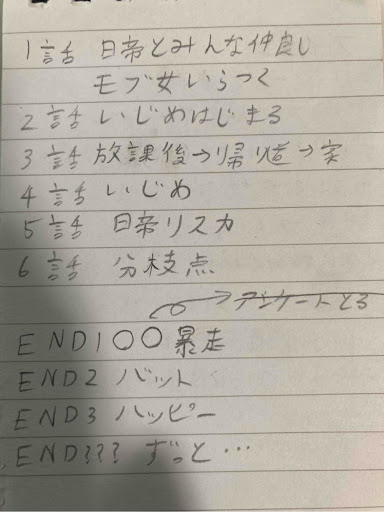 1話 日帝とみんな仲良し
モブ女いらつく
2話 いじめはじまる
3話 放課後→帰り道→家
4話 いじめ
5話 日帝リスカ
6話 分枝点
→アンケートとる
END1〇〇暴走
END2 バット
END3 ハッピー
END??? ずっと…